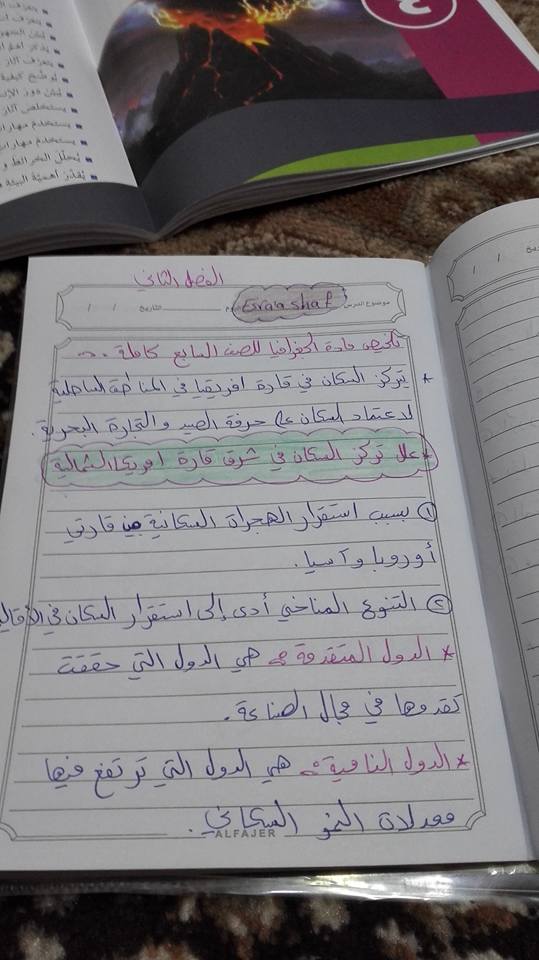 ٤
يتعرف
يتعرف آثار
يستخلص آثار
يستخدم مهارات
يستخدم مهارات
يُحلّل الخرائط و
يُقدّر أهميّة البيئة
الفصل الثاني
موضوع الدرس
Esraa shaf
التاريخ / /
/ /
تلخيص مادة الجغرافيا للصف السابع كاملة :-
* تركز السكان في قارة افريقيا في المناطق الساحلية
لاعتماد السكان على حرفة الصيد والتجارة البحرية .
* علل تركز السكان في شرق قارة امريكا الشمالية
① بسبب استقرار الهجرات السكانية من قارتي
أوروبا وآسيا .
② التنوع المناخي أدى إلى استقرار السكان في الأقالي
* الدول المتقدمة :- هي الدول التي حققت
تقدمها في مجال الصناعة .
* الدول النامية :- هي الدول التي ترتفع فيها
معدلات النمو السكاني .
ALFAJER